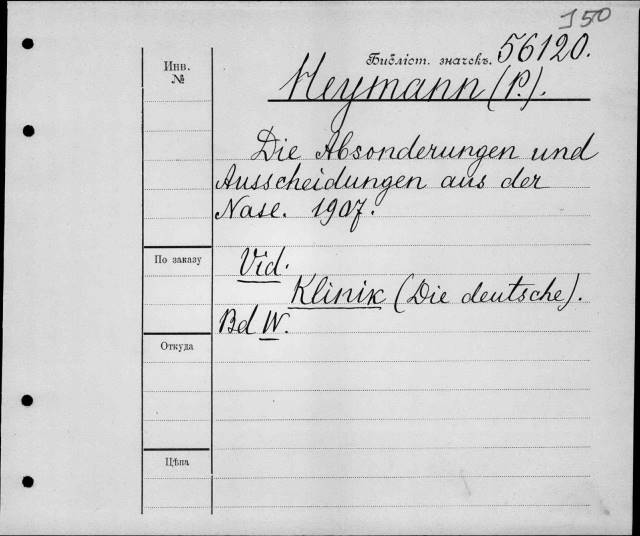 J50
Библіот. значекъ. 56120.
Инв.
№
Heymann (P.).
Die Absonderungen und
Ausscheidungen aus der
Nase. 1907.
По заказу
Vid.
Klinik (Die deutsche).
Bd IV.
Откуда
Цѣна